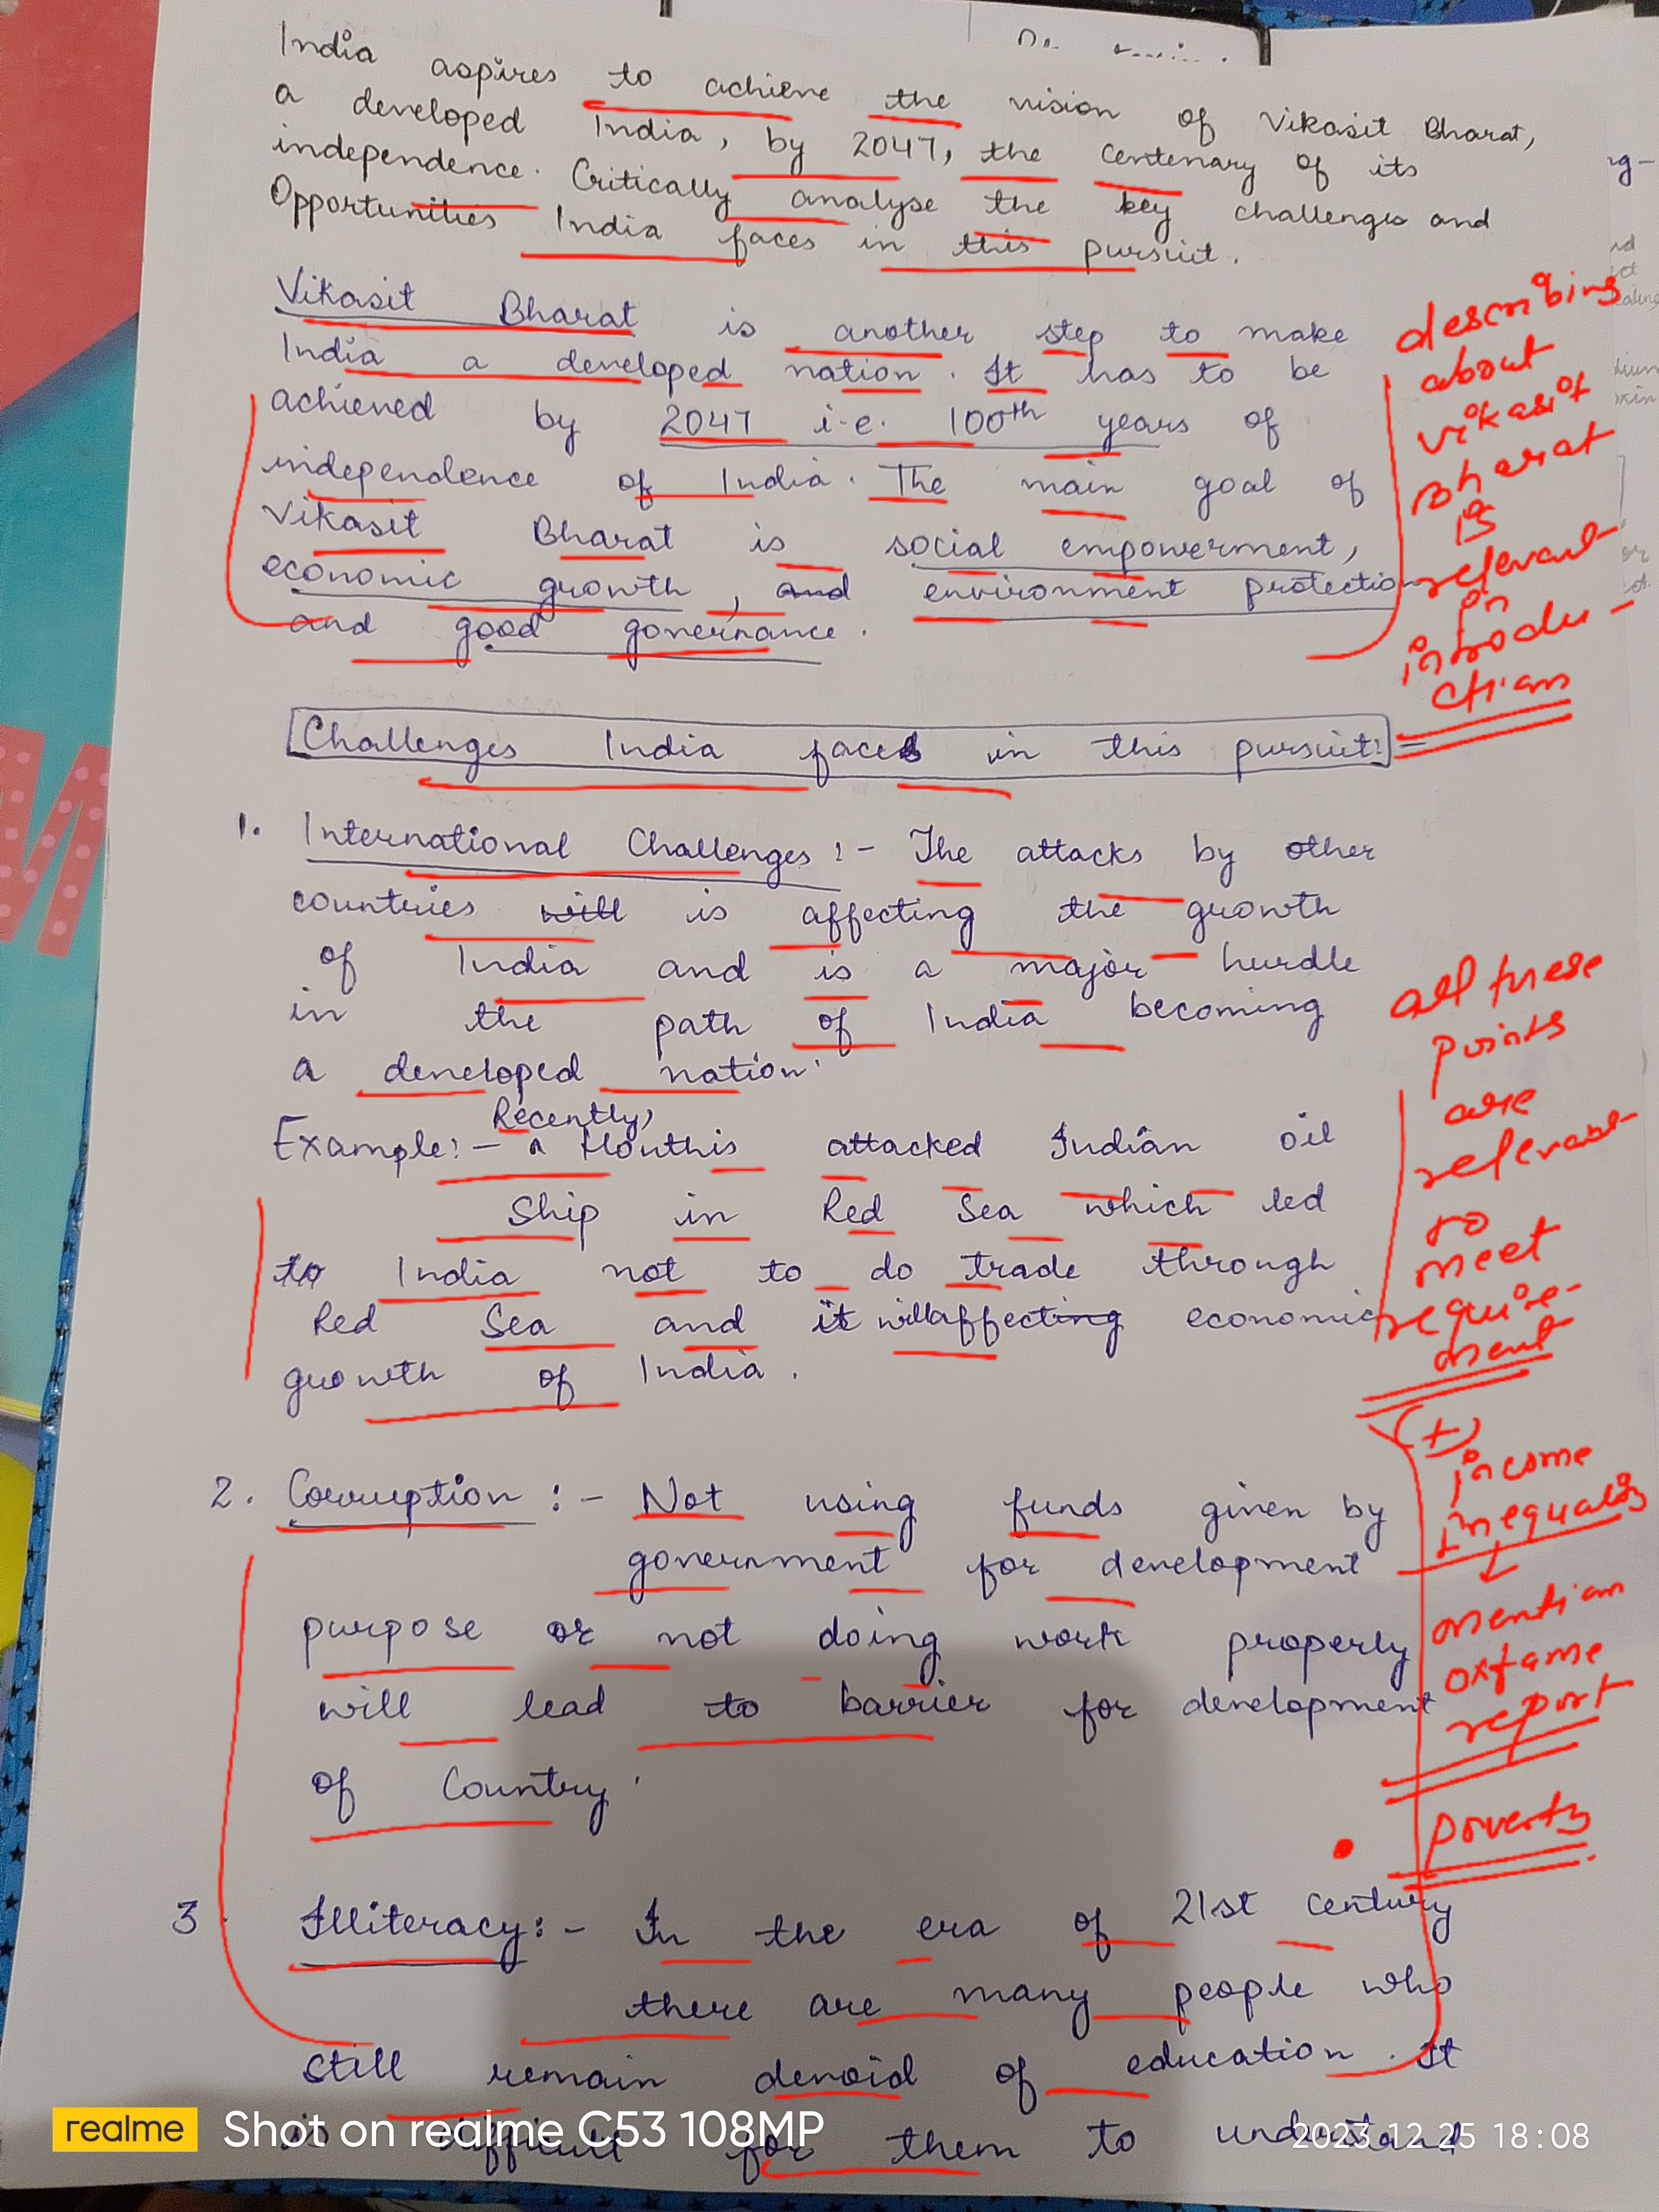 India aspires to achieve the vision of Vikasit Bharat,
a developed India, by 2047, the centenary of its
independence. Critically analyse the key challenges and
Opportunities India faces in this pursuit.
Vikasit Bharat is another step to make
India a developed nation. It has to be
achieved by 2047 i.e. 100th years of
independence of India. The main goal of
Vikasit Bharat is social empowerment,
economic growth, and environment protection
and good governance.
describing
about
vikasit
Bharat
is
relevant
in
introdu-
ction
Challenges India faces in this pursuit:-
1. International Challenges:- The attacks by other
countries will is affecting the growth
of India and is a major hurdle
in the path of India becoming
a developed nation.
Recently,
Example:- Houthis attacked Indian oil
Ship in Red Sea which led
to India not to do trade through
Red Sea and it will affecting economic
growth of India.
all these
points
are
relevant
to
meet
require-
ment
2. Corruption:- Not using funds given by
government for development
purpose or not doing work properly
will lead to barrier for development
of Country.
(+)
income
inequality
mention
oxfame
report
poverty
3. Illiteracy:- In the era of 21st century
there are many people who
still remain devoid of education. It
is difficult for them to understand
realme Shot on realme C53 108MP
2023.12.25 18:08